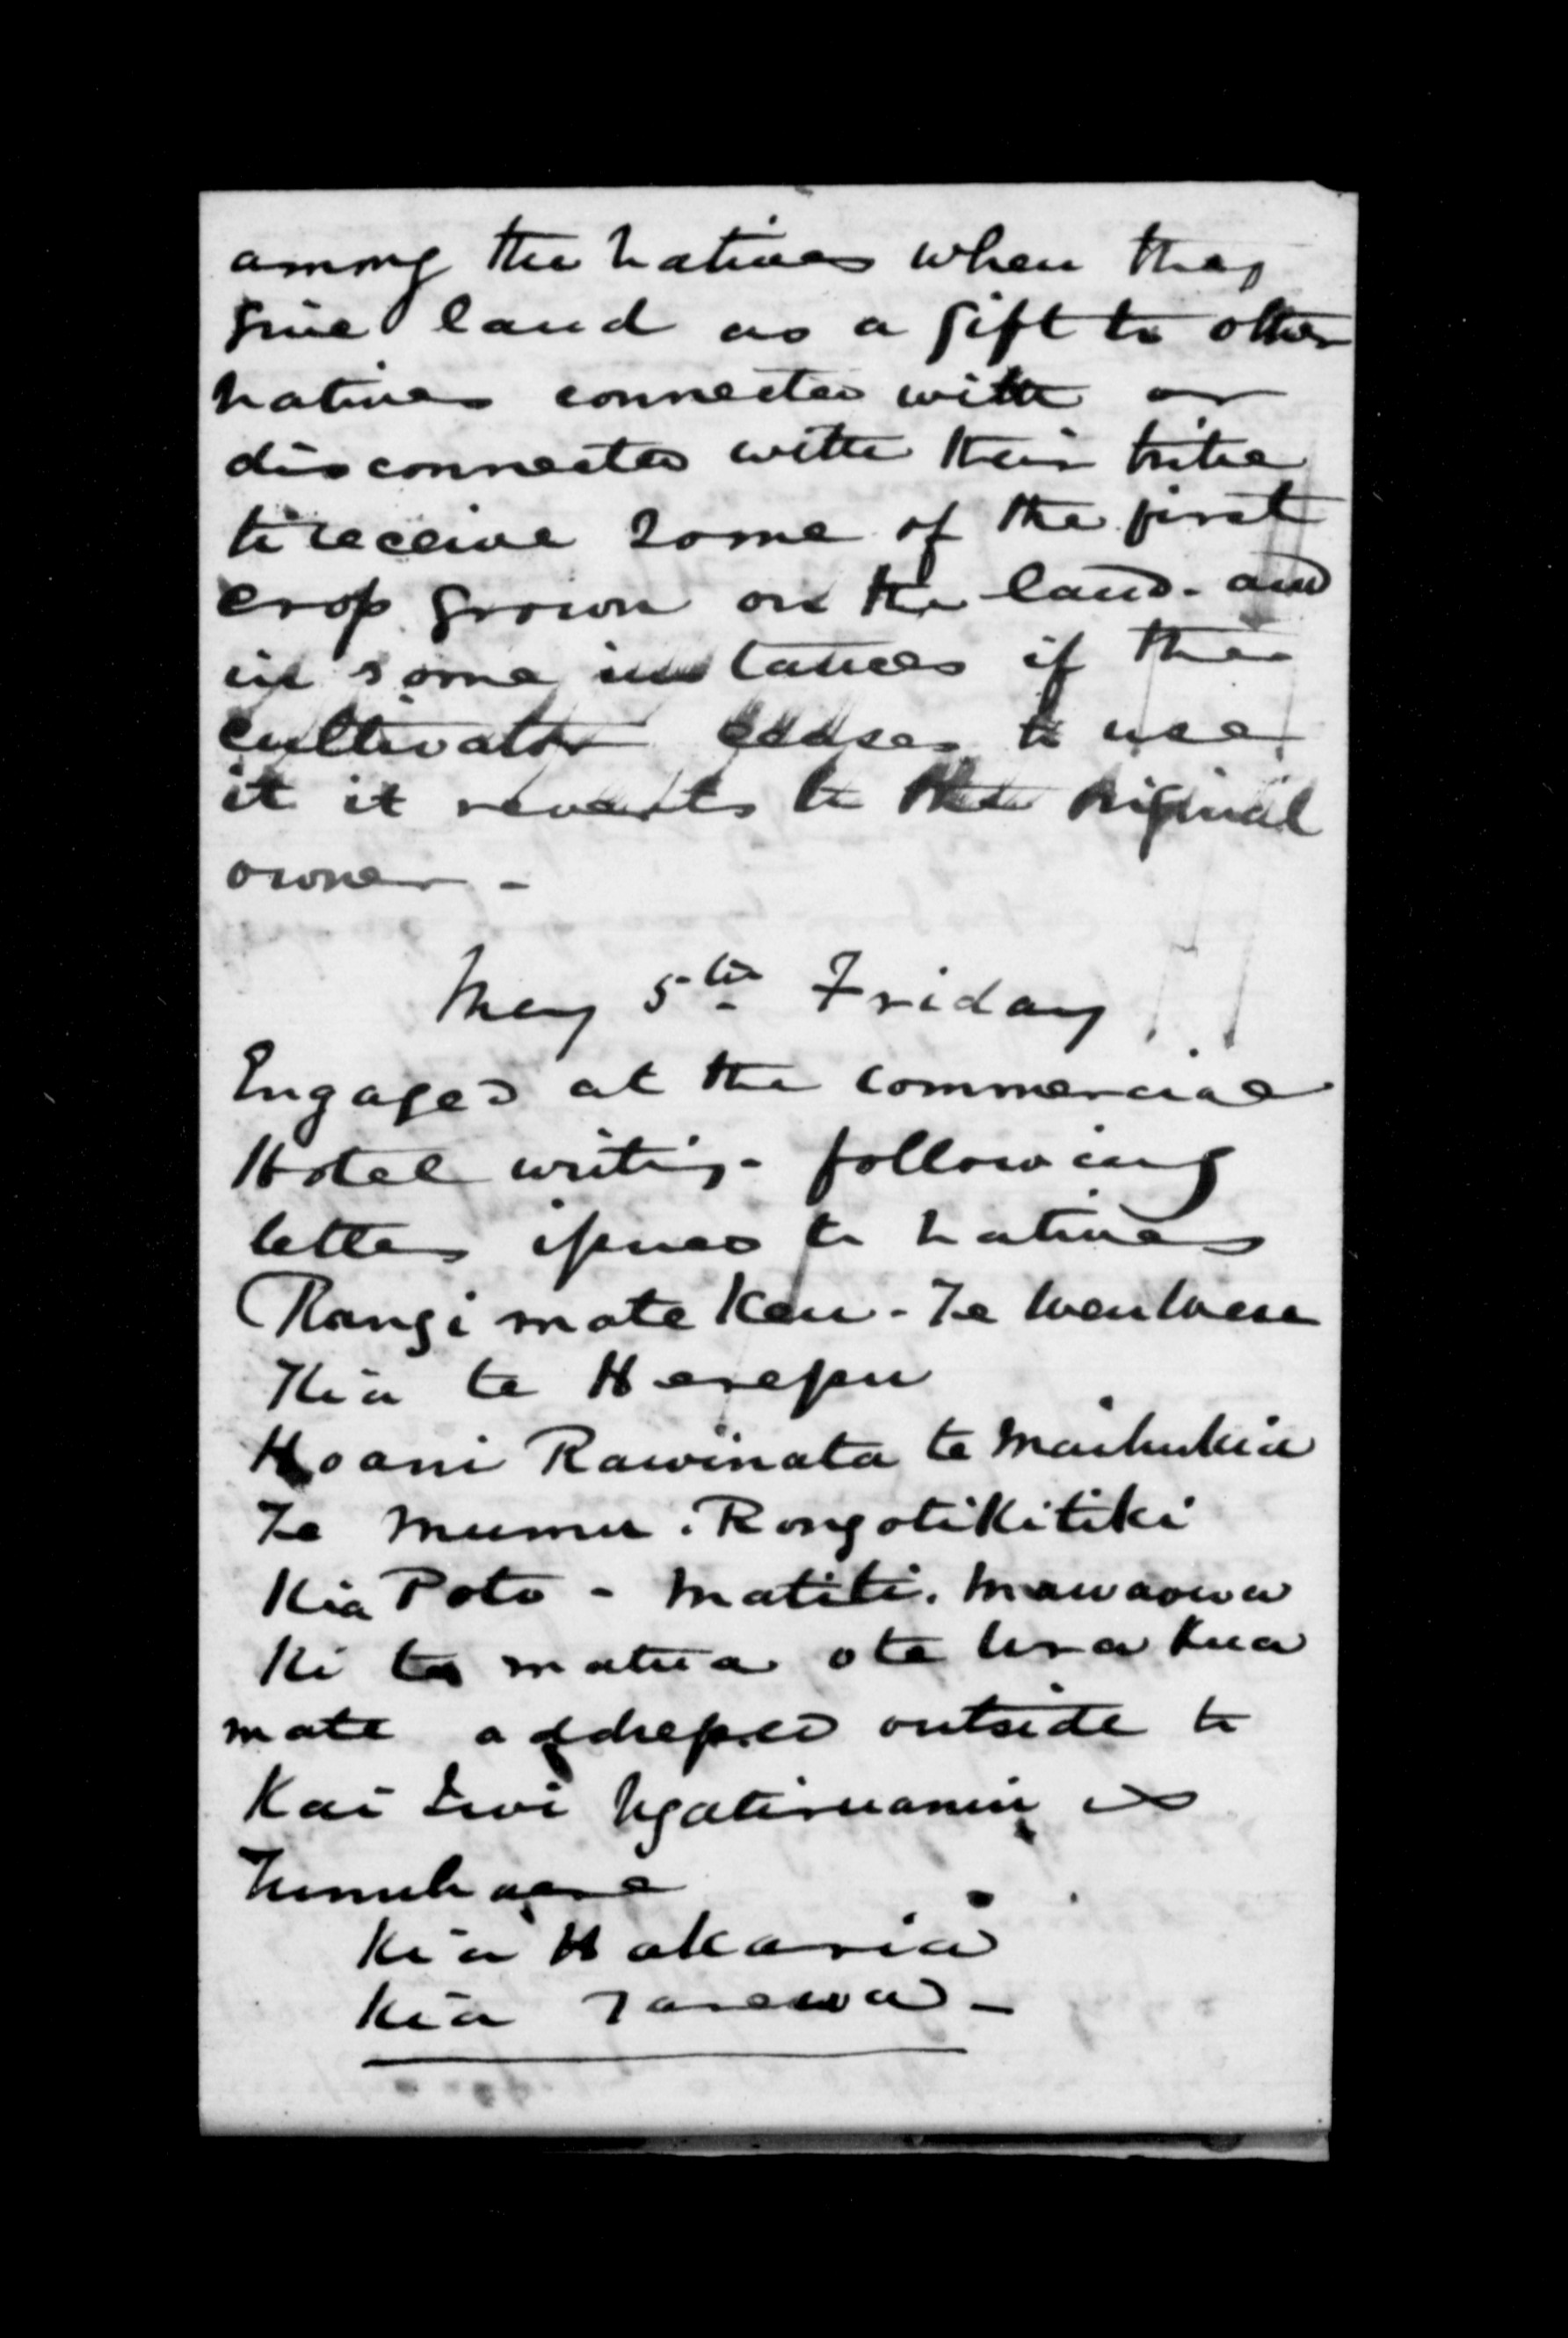 among the natives when they
give land as a gift to other
natives connected with or
disconnected with their tribe
to receive some of the first
crop grown on the land - and
in some instances if the
cultivator ceases to use
it it reverts to the original
owner -
May 5th Friday
Engaged at the commercial
Hotel writing - following
letters issued to natives
Rangi mate Kau - Te
Kia te Herepu
Hoani Rawinata te Maihukia
Te Mumu . Rongotikitiki
Kia Poto - Matiti . Mawaowa
Ki te matua o te Ura Kua
mate addressed outside to
Kai Iwi Ngatiruanui
Tumuhaere
Kia Hakaria
Kia Tarewa -